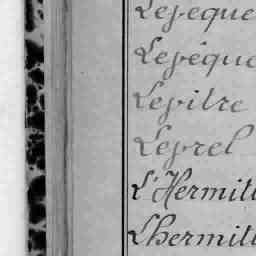 Lepeque
Lepéque
Lepitre
Leprel
L'Hermit
Lhermit